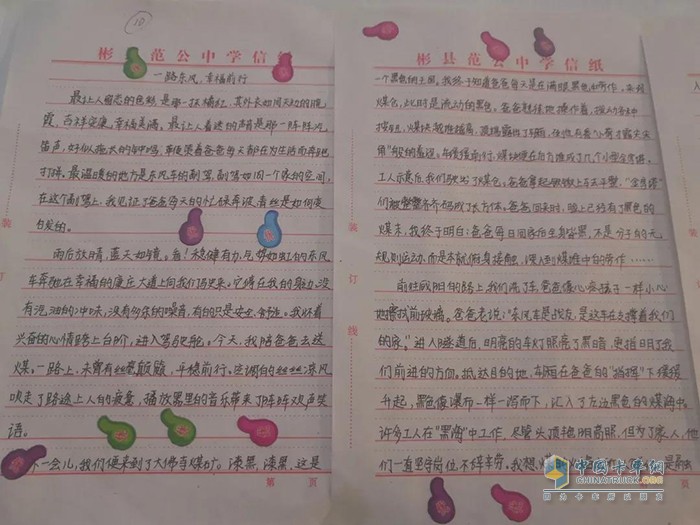 10
彬 范公中学信纸
一路东风,幸福前行
最让人留恋的色彩是那一抹橘红,其外长如同天边的晚
霞,吉祥安康,幸福美满。最让人着迷的声音是那一阵阵汽
笛声,好似拖长的号鸣,率领着爸爸每天都在为生活而奔跑
打拼。最温暖的地方是东风车的副驾,副驾如同一个家的空间,
在这个副驾上,我见证了爸爸每天的忙碌奔波,看丝是如何变
白发的。
雨后放晴,蓝天如镜。看!稳健有力,气势如虹的东风
车奔驰在幸福的康庄大道上向我们驶来。它停在我的身边,没
有汽油的冲味,没有杂乱的噪音,有的只是安全,舒适。我怀着
兴奋的心情踏上台阶,进入驾驶舱。今天,我陪爸爸去送
煤。一路上,未曾有丝毫颠簸,平稳前行。空调的丝丝凉风
吹走了路途上人的疲惫,播放器里的音乐带来了阵阵欢声笑
语。
不一会儿,我们便来到了大佛寺煤矿。漆黑,漆黑,这是
第 页
装
订
彬县范公中学信纸
一个黑色的王国。我终于知道爸爸每天是在满眼黑色的劳作。来到
煤仓,此时是流动的黑色,爸爸熟练地操作着,投入
按钮,煤块般堆积角,顶棚露出了
角"般的着迷。车缓缓前行,煤块便在后方堆成了几个小型金字塔。
工人示意后,我们驶出了煤仓。爸爸拿起铁锨上去平整,"金字塔"
们被整齐齐码成了长方体。爸爸回来时,脸上已经有了黑色的
煤末。我终于明白:爸爸每日回家后全身发黑,不是分子的无
规则运动,而是不能俯身接触,深入到煤堆中的劳作……
前往咸阳的路上我们洗了车,爸爸像心疼孩子一样小心
地擦拭前玻璃。爸爸老说:"东风车是战友,是这车在支撑着我们
的家。"进入隧道后,明亮的车灯照亮了黑暗,更指明了我
们前进的方向。抵达目的地,车厢在爸爸的"指挥"下缓缓
升起,黑色像瀑布一样一泻而下,汇入了左边黑色的煤海中。
许多工人在"黑海"中工作,尽管头顶艳阳高照,但为了家人,他
们一直坚守岗位,不辞辛劳。我想,
页
装
订
线
中国卡车网
CHINATRUCK.ORG